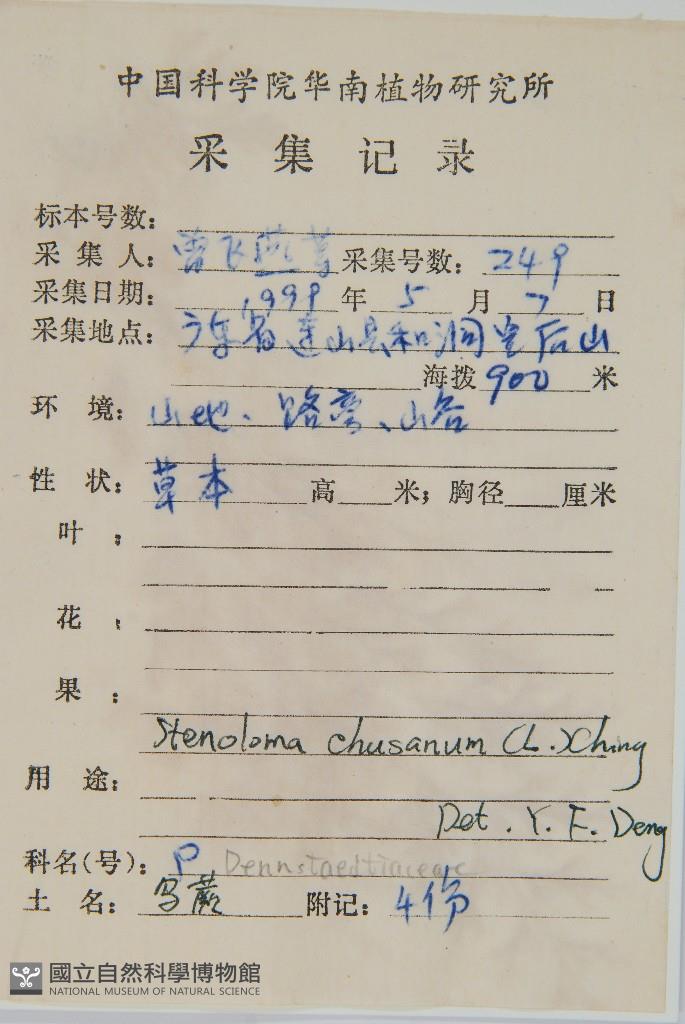 中国科学院华南植物研究所
采集记录
标本号数:
采集人: 曾飞燕等 采集号数: 249
采集日期: 1999 年 5 月 7 日
采集地点: 广东省连山县和洞皇后山
海拨 900 米
环境: 山地、路旁、山谷
性状: 草本 高 米; 胸径 厘米
叶:
花:
果:
Stenoloma chusanum (L.) Ching
用途:
Det. Y. F. Deng
科名(号): P Dennstaedtiaceae
土名: 乌蕨 附记: 4份
國立自然科學博物館
NATIONAL MUSEUM OF NATURAL SCIENCE